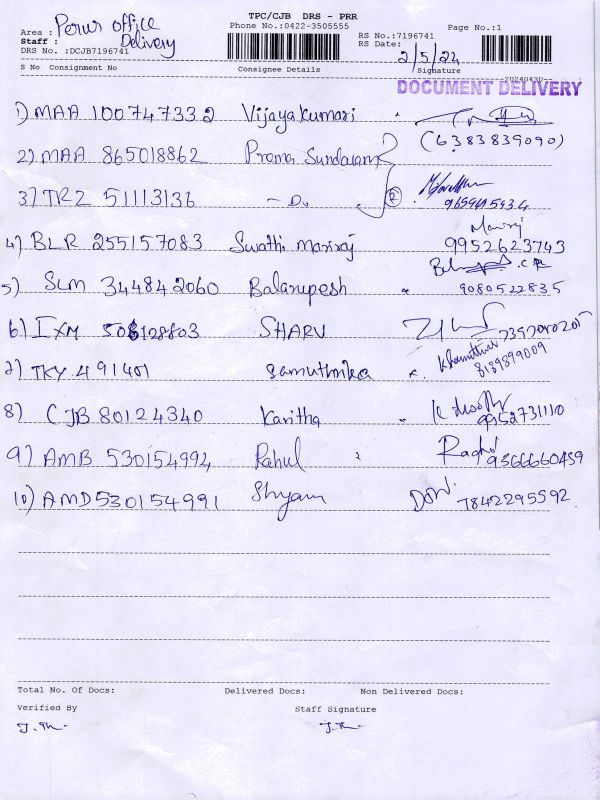 TPC/CJB DRS - PRR
Area : Perur office
Phone No.:0422-3505555
Page No.:1
Staff : Delivery
RS No.:7196741
DRS No. :DCJB7196741
RS Date: 2/5/24
S No Consignment No Consignee Details /Signature
20240430
DOCUMENT DELIVERY
1) MAA 100747332 Vijayakumari
(6383839090)
2) MAA 865018862 Prema Sundaram
3) TRZ 51113136 - Do
4) BLR 255157083 Swathi Maniraj Maniraj
9952623743
5) SLM 344842060 Balarupesh
9080522835
6) IXM 506128803 SHARV
7) TKY 491401 Samuthrika
8189899009
8) CJB 80124340 Kavitha
9952731110
9) AMB 530154992 Rahul
9566660459
10) AMD530154991 Shyam
7842295592
Total No. Of Docs: Delivered Docs: Non Delivered Docs:
Verified By Staff Signature